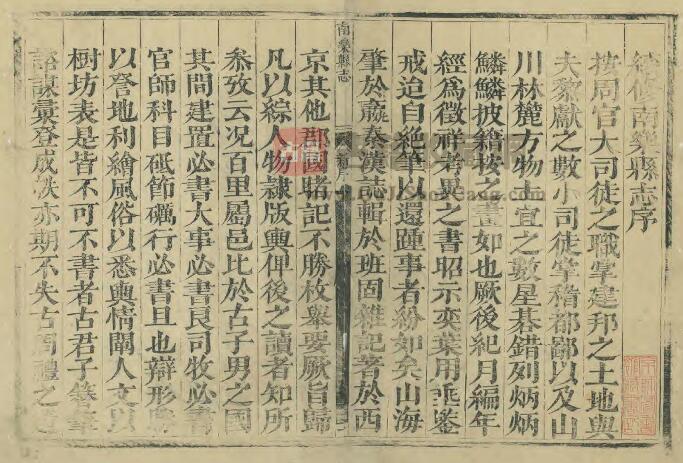 續修南樂縣志序
按周官大司徒之職掌建邦之土地與
夫黎獻之數小司徒掌稽都鄙以及山
川林麓方物土宜之數星碁錯列炳炳
鱗鱗披籍按之畫如也厥後紀月編年
經為徵祥考異之書昭示奕葉用垂鑒
戒迨自絕筆以還踵事者紛如矣山海
肇於嬴秦漢誌輯於班固雜記著於西
南樂縣志
京其他郡國睹記不勝枚舉要厥旨歸
凡以綜人物隸版輿俾後之讀者知所
叅攷云况百里屬邑比於古子男之國
其間建置必書大事必書良司牧必書
官師科目砥節礪行必書且也辯形
以詧地利繪風俗以悉輿情闡人文以
樹坊表是皆不可不書者古君子
諮謀彙登成帙亦期不失古周禮之